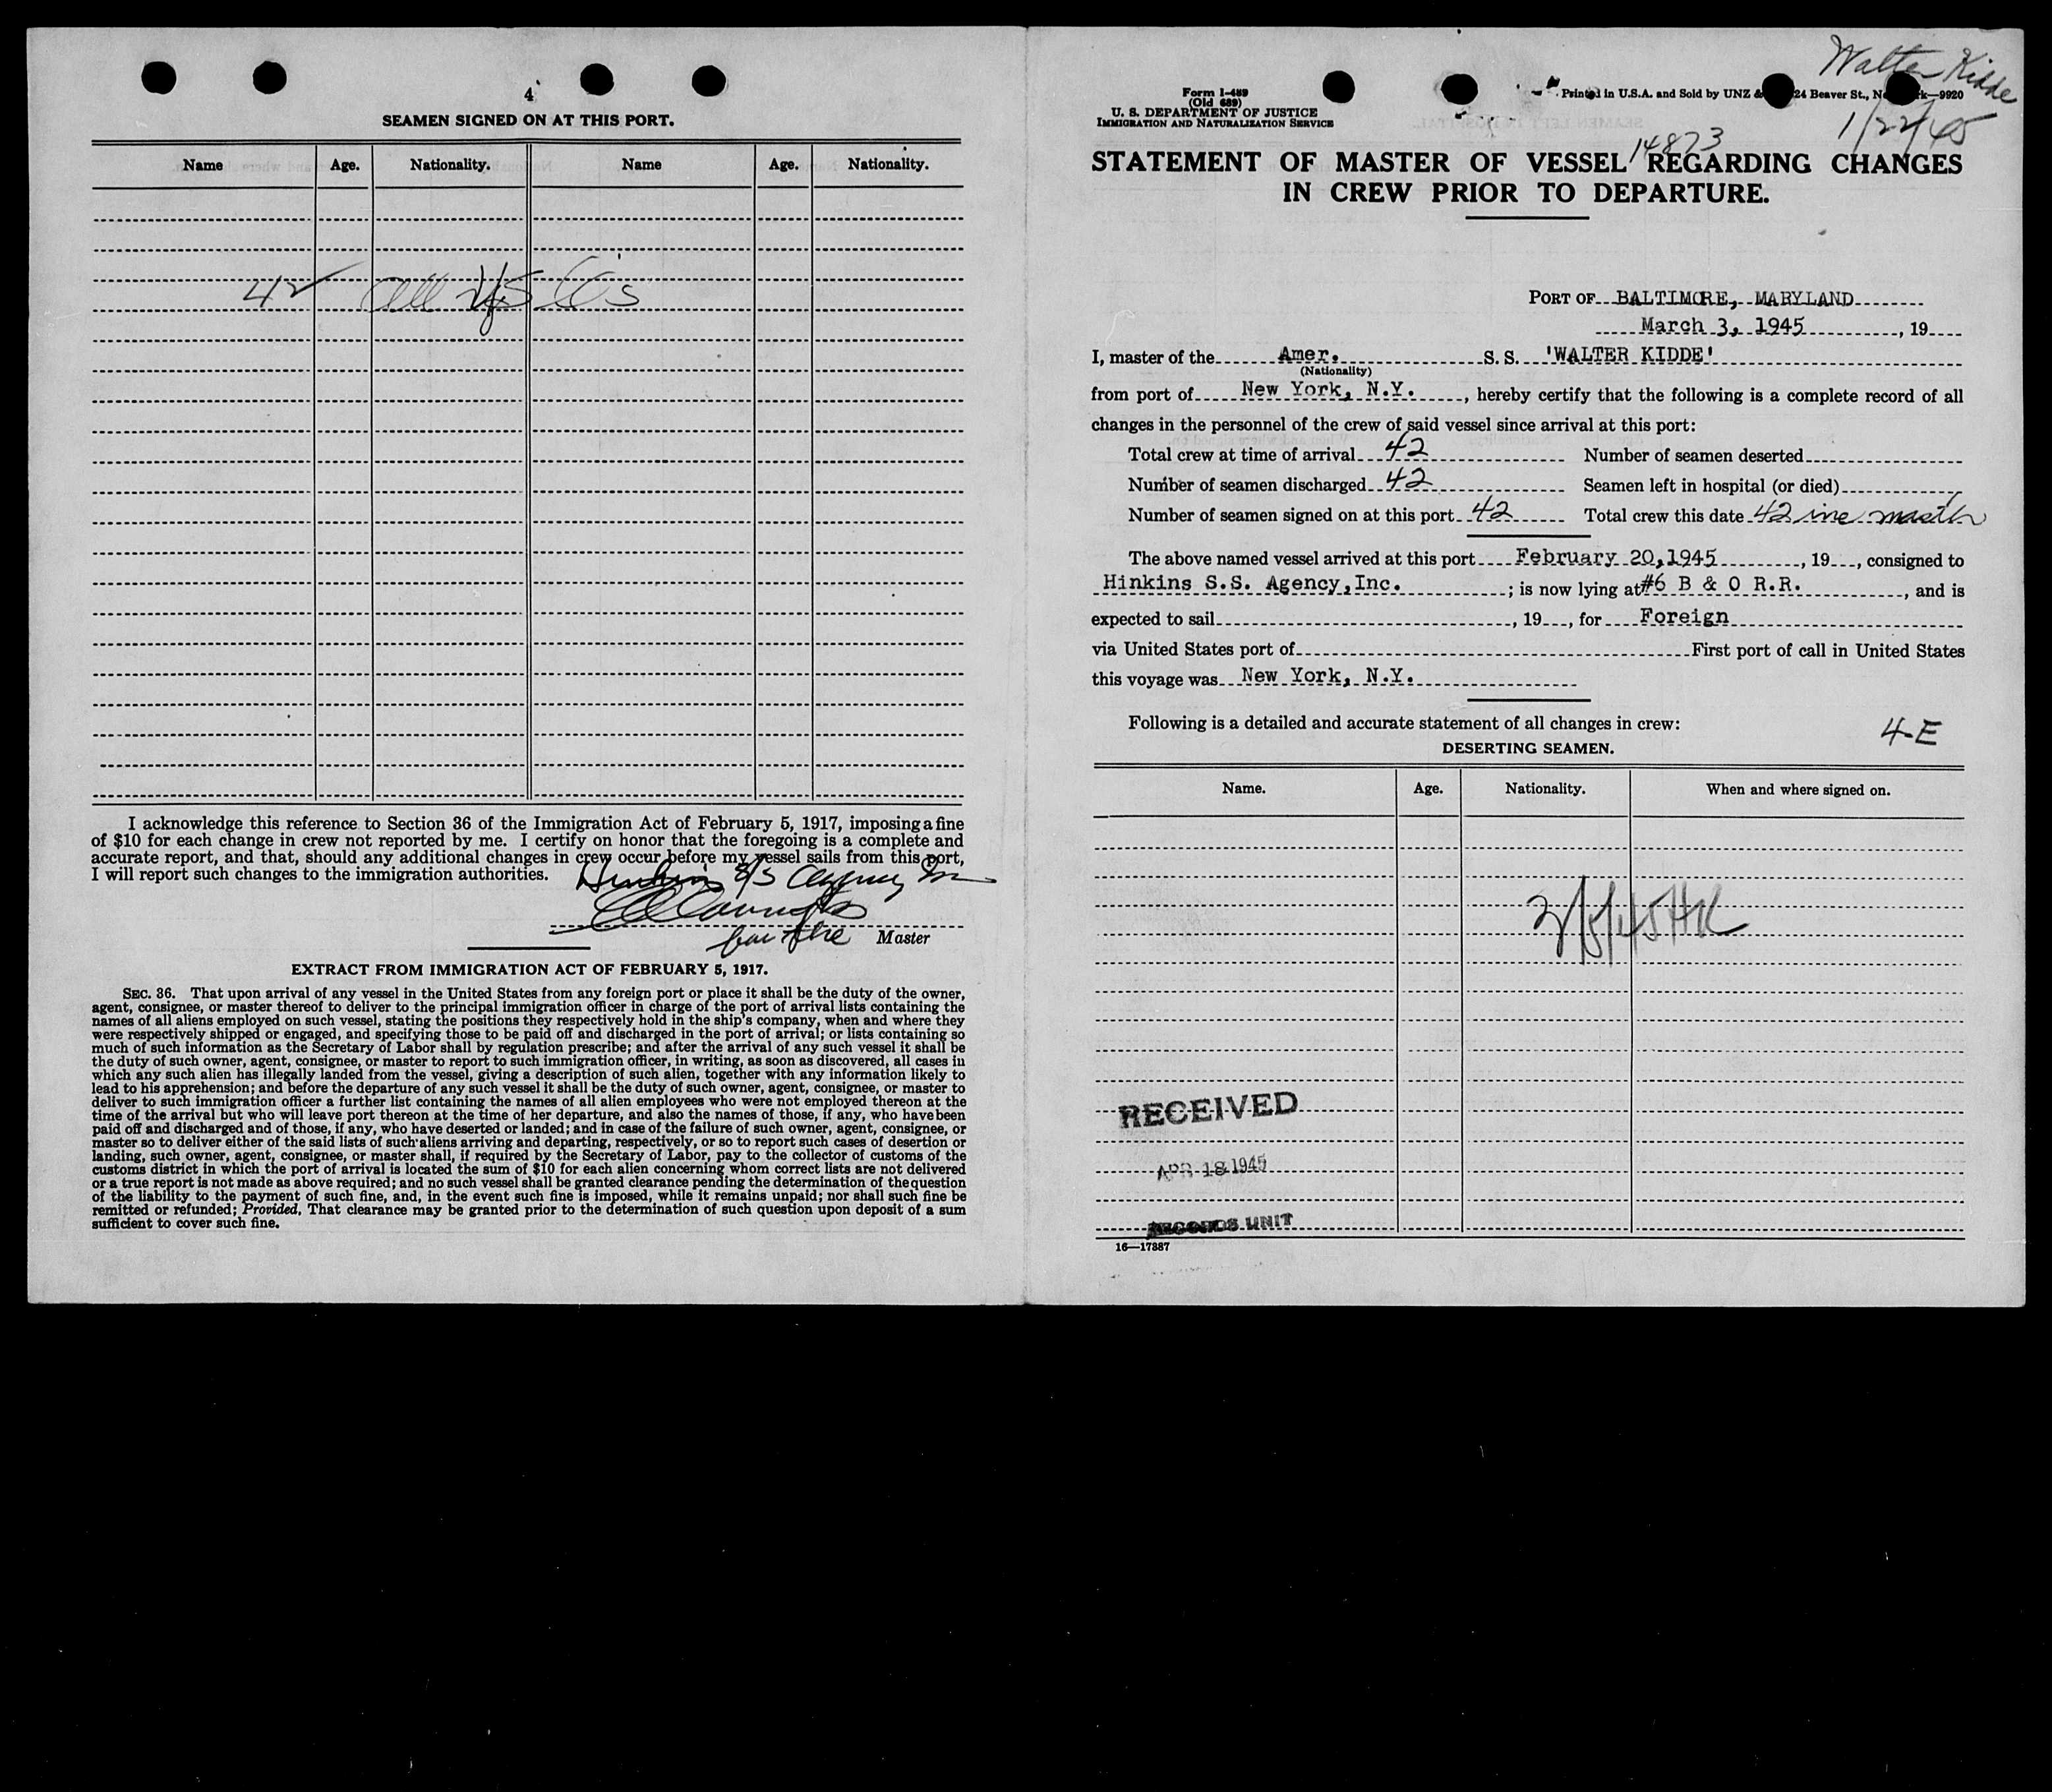 4
SEAMEN SIGNED ON AT THIS PORT.
Name Age. Nationality. Name Age. Nationality.
42 all
I acknowledge this reference to Section 36 of the Immigration Act of February 5, 1917, imposing a fine
of $10 for each change in crew not reported by me. I certify on honor that the foregoing is a complete and
accurate report, and that, should any additional changes in crew occur before my vessel sails from this port,
I will report such changes to the immigration authorities.
Hinkins S/S Agency Inc
for the Master
EXTRACT FROM IMMIGRATION ACT OF FEBRUARY 5, 1917.
SEC. 36. That upon arrival of any vessel in the United States from any foreign port or place it shall be the duty of the owner,
agent, consignee, or master thereof to deliver to the principal immigration officer in charge of the port of arrival lists containing the
names of all aliens employed on such vessel, stating the positions they respectively hold in the ship's company, when and where they
were respectively shipped or engaged, and specifying those to be paid off and discharged in the port of arrival; or lists containing so
much of such information as the Secretary of Labor shall by regulation prescribe; and after the arrival of any such vessel it shall be
the duty of such owner, agent, consignee, or master to report to such immigration officer, in writing, as soon as discovered, all cases in
which any such alien has illegally landed from the vessel, giving a description of such alien, together with any information likely to
lead to his apprehension; and before the departure of any such vessel it shall be the duty of such owner, agent, consignee, or master to
deliver to such immigration officer a further list containing the names of all alien employees who were not employed thereon at the
time of the arrival but who will leave port thereon at the time of her departure, and also the names of those, if any, who have been
paid off and discharged and of those, if any, who have deserted or landed; and in case of the failure of such owner, agent, consignee, or
master so to deliver either of the said lists of such aliens arriving and departing, respectively, or so to report such cases of desertion or
landing, such owner, agent, consignee, or master shall, if required by the Secretary of Labor, pay to the collector of customs of the
customs district in which the port of arrival is located the sum of $10 for each alien concerning whom correct lists are not delivered
or a true report is not made as above required; and no such vessel shall be granted clearance pending the determination of the question
of the liability to the payment of such fine, and, in the event such fine is imposed, while it remains unpaid; nor shall such fine be
remitted or refunded; Provided, That clearance may be granted prior to the determination of such question upon deposit of a sum
sufficient to cover such fine.
Walter Kidde
1/22/45
Form I-489
(Old 689)
U. S. DEPARTMENT OF JUSTICE
IMMIGRATION AND NATURALIZATION SERVICE
Printed in U.S.A. and Sold by UNZ & 24 Beaver St., 9920
14873
STATEMENT OF MASTER OF VESSEL REGARDING CHANGES
IN CREW PRIOR TO DEPARTURE.
PORT OF BALTIMORE, MARYLAND
March 3, 1945, 19
I, master of the Amer. S. S. 'WALTER KIDDE'
(Nationality)
from port of New York, N.Y., hereby certify that the following is a complete record of all
changes in the personnel of the crew of said vessel since arrival at this port:
Total crew at time of arrival 42 Number of seamen deserted
Number of seamen discharged 42 Seamen left in hospital (or died)
Number of seamen signed on at this port 42 Total crew this date 42 inc master
The above named vessel arrived at this port February 20,1945, 19, consigned to
Hinkins S.S. Agency,Inc.; is now lying at #6 B & O R.R., and is
expected to sail, 19, for Foreign
via United States port of First port of call in United States
this voyage was New York, N.Y.
Following is a detailed and accurate statement of all changes in crew:
4-E
DESERTING SEAMEN.
Name. Age. Nationality. When and where signed on.
RECEIVED
APR 18 1945
RECORDS UNIT
16—17887